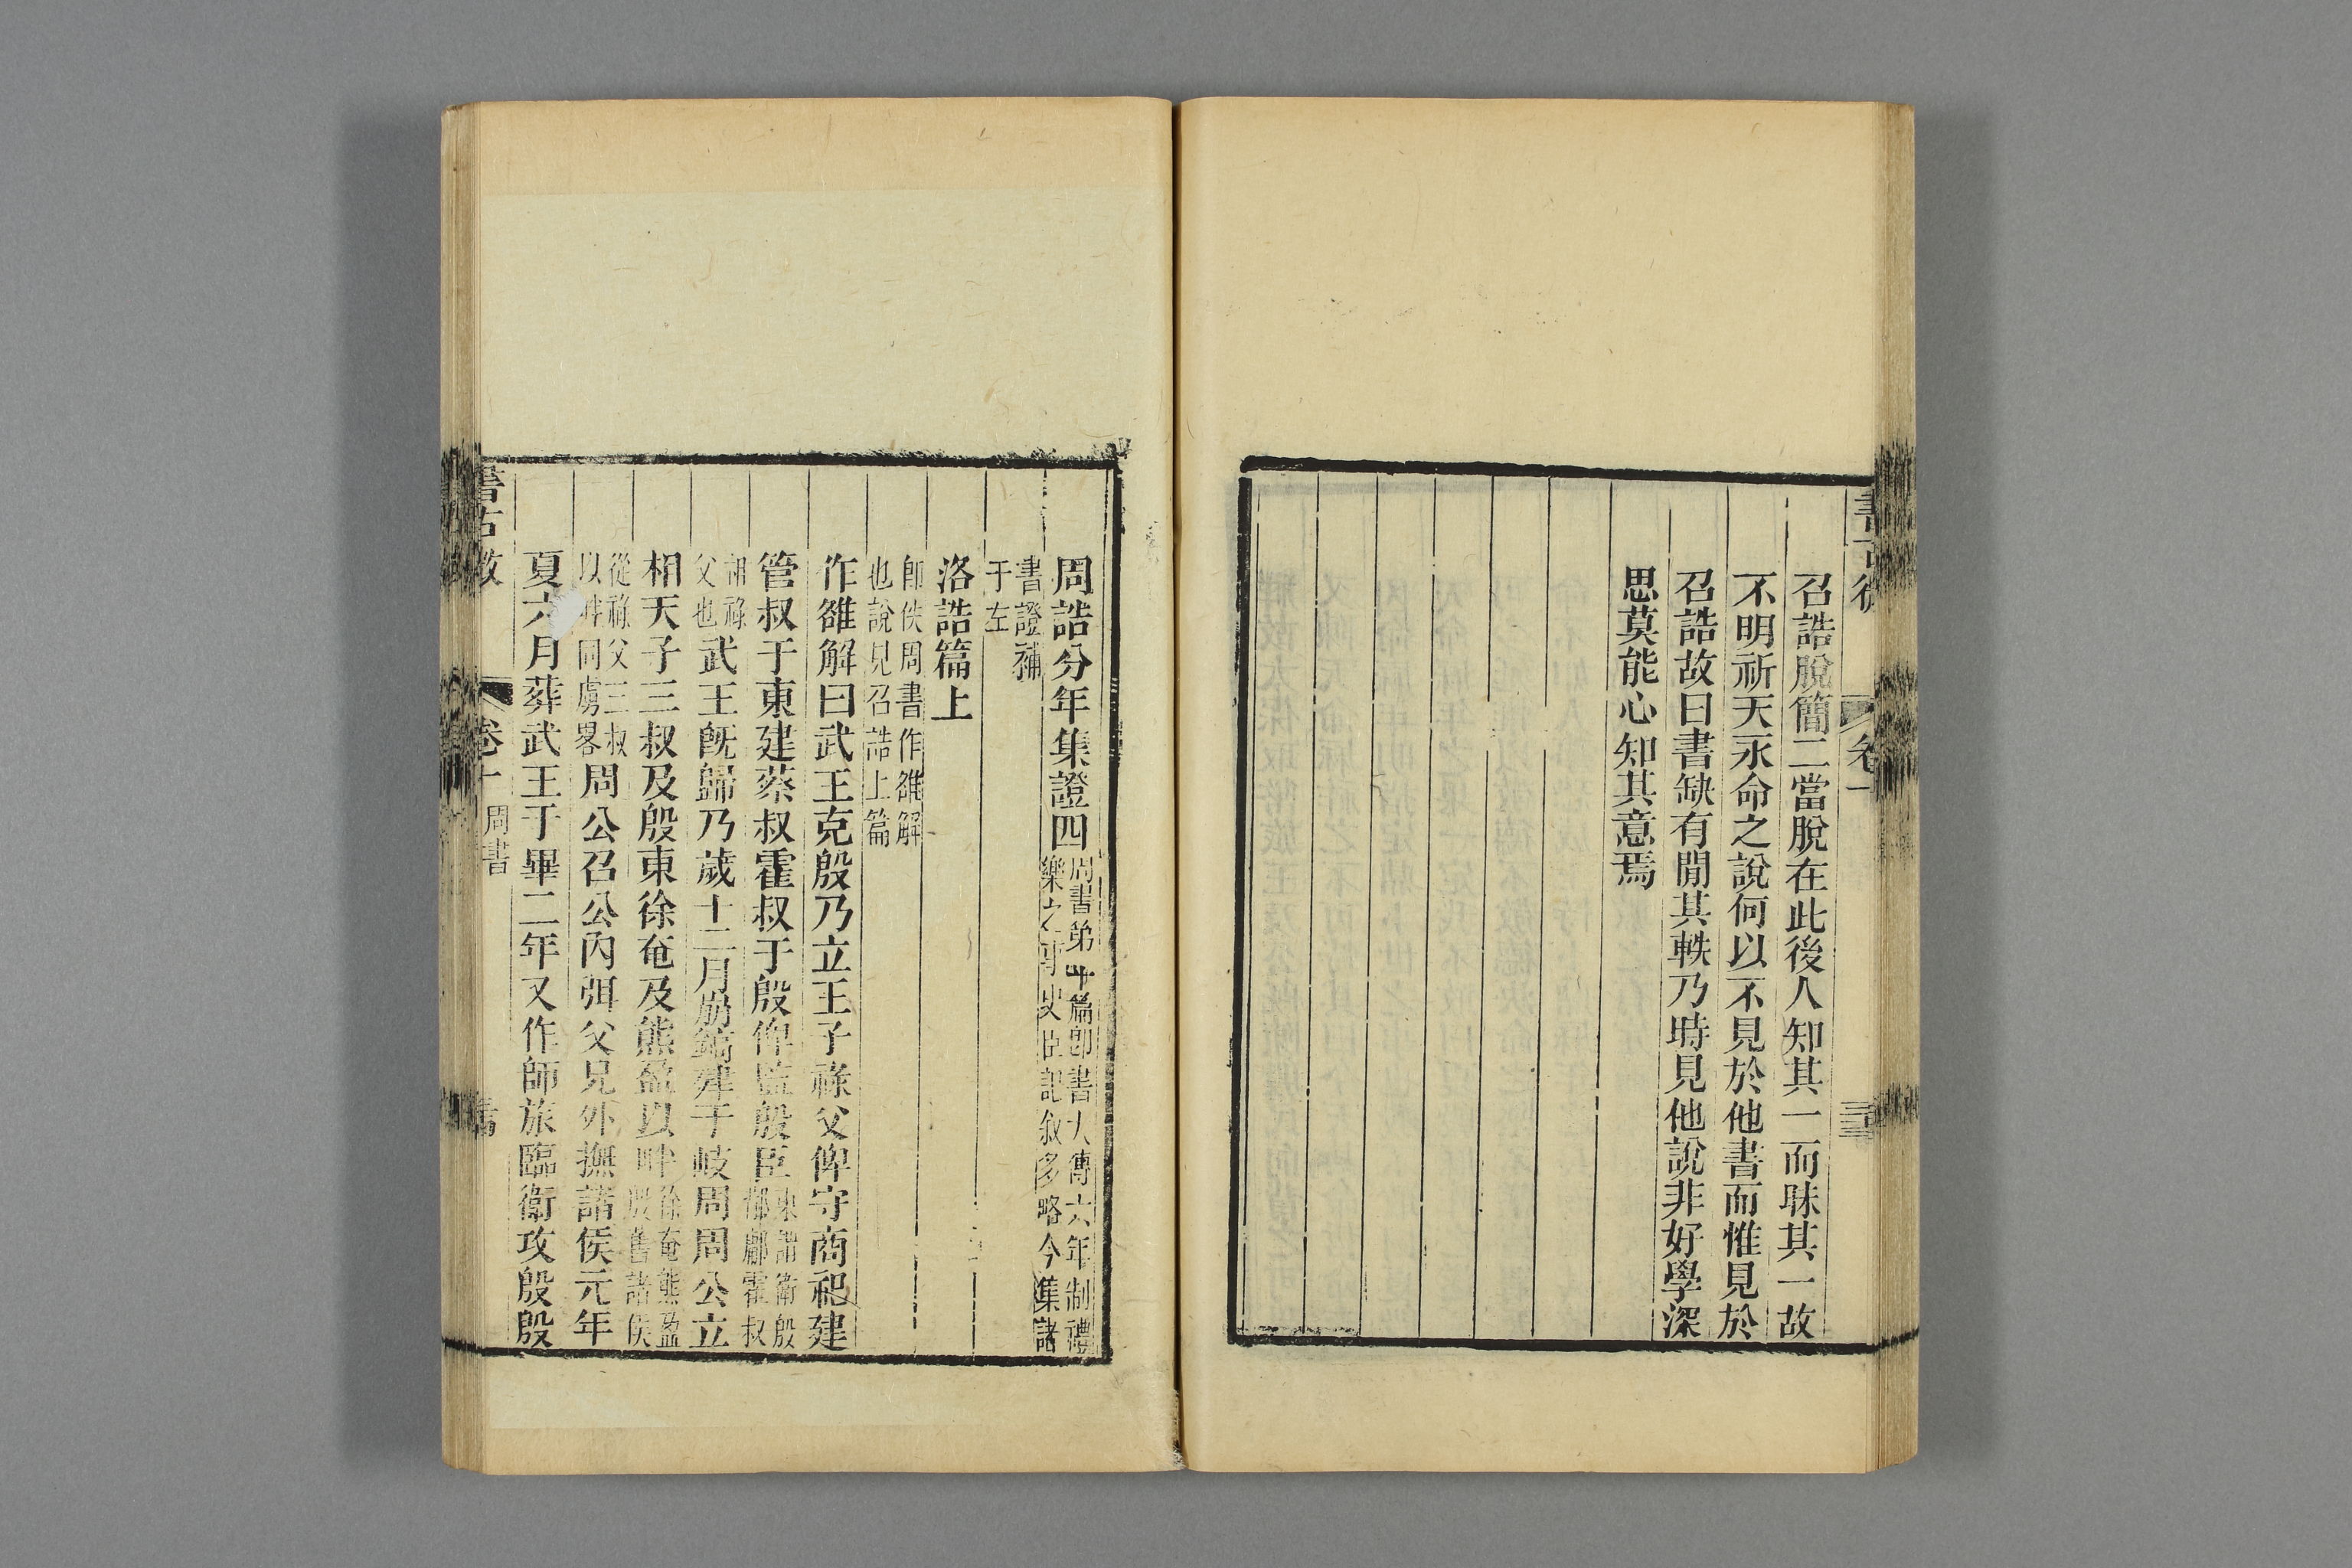 召誥脫簡二當脫在此後人知其一而昧其一故
不明祈天永命之說何以不見於他書而惟見於
召誥故曰書缺有閒其軼乃時見他說非好學深
思莫能心知其意焉
周誥分年集證四
周書弟十篇卽書大傳六年制禮
樂之事史臣記叙多略今集諸
書證補
于左
洛誥篇上
卽佚周書作雒解
也說見召誥上篇
作雒解曰武王克殷乃立王子祿父俾守商祀建
管叔于東建蔡叔霍叔于殷俾監殷臣
東謂衛殷
鄁鄘霍叔
相祿
父也
武王旣歸乃歲十二月崩鎬殣于岐周周公立
相天子三叔及殷東徐奄及熊盈以畔
徐奄熊盈
殷舊諸侯
從祿父三叔
以畔同虜畧
周公召公內弭父兄外撫諸侯元年
夏六月葬武王于畢二年又作師旅臨衛攻殷殷
書古微
卷十
周書